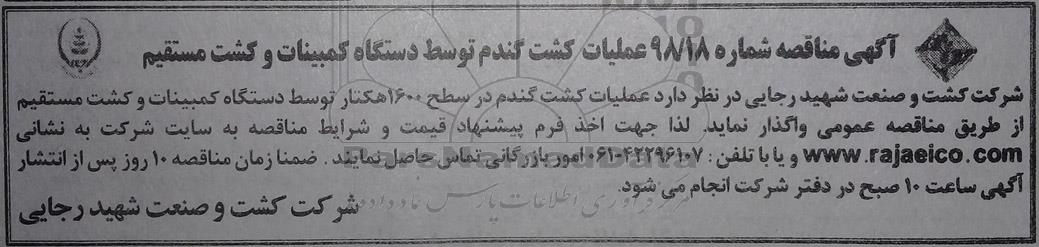 آگهی مناقصه شماره ۹۸/۱۸ عملیات کشت گندم توسط دستگاه کمبینات و کشت مستقیم
شرکت کشت و صنعت شهید رجایی در نظر دارد عملیات کشت گندم در سطح ۱۶۰۰هکتار توسط دستگاه کمبینات و کشت مستقیم
از طریق مناقصه عمومی واگذار نماید. لذا جهت اخذ فرم پیشنهاد قیمت و شرایط مناقصه به سایت شرکت به نشانی
www.rajaeico.com و یا با تلفن : ۴۲۲۹۶۱۰۷-۰۶۱ امور بازرگانی تماس حاصل نمایند . ضمنا زمان مناقصه ۱۰ روز پس از انتشار
آگهی ساعت ۱۰ صبح در دفتر شرکت انجام می شود.
شرکت کشت و صنعت شهید رجایی